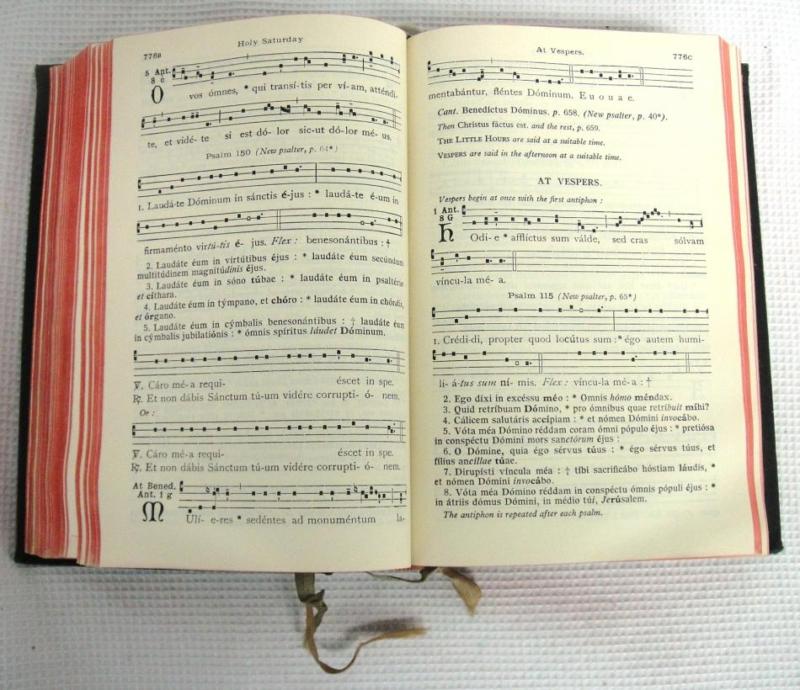 776B
Holy Saturday
5 Ant.
8 c
O vos ómnes, * qui transí-tis per ví-am, atténdi-
te, et vidé-te si est dó-lor sic-ut dó-lor mé-us.
Psalm 150 (New psalter, p. 64*)
1. Laudá-te Dóminum in sánctis é-jus : * laudá-te é-um in
firmaménto virtú-tis é- jus. Flex : benesonántibus : †
2. Laudáte éum in virtútibus éjus : * laudáte éum secúndum
multitúdinem magnitúdinis éjus.
3. Laudáte éum in sóno túbae : * laudáte éum in psaltério
et cíthara.
4. Laudáte éum in týmpano, et chóro : * laudáte éum in chórdis,
et órgano.
5. Laudáte éum in cýmbalis benesonántibus : † laudáte éum
in cýmbalis jubilatiónis : * ómnis spíritus láudet Dóminum.
℣. Cáro mé-a requi- éscet in spe.
℟. Et non dábis Sánctum tú-um vidére corrupti- ó- nem.
Or :
℣. Cáro mé-a requi- éscet in spe.
℟. Et non dábis Sánctum tú-um vidére corrupti- ó- nem.
At Bened.
Ant. 1 g
M Ulí- e-res * sedéntes ad monuméntum la-
At Vespers.
776C
mentabántur, fléntes Dóminum. E u o u a e.
Cant. Benedíctus Dóminus, p. 658. (New psalter, p. 40*).
Then Christus fáctus est. and the rest, p. 659.
THE LITTLE HOURS are said at a suitable time.
VESPERS are said in the afternoon at a suitable time.
AT VESPERS.
Vespers begin at once with the first antiphon :
1 Ant.
8 G
H Odi- e * afflíctus sum válde, sed cras sólvam
víncu-la mé- a.
Psalm 115 (New psalter, p. 65*)
1. Crédi-di, propter quod locútus sum : * égo autem humi-
li- á-tus sum ní- mis. Flex : víncu-la mé-a : †
2. Ego díxi in excéssu méo : * Omnis hómo méndax.
3. Quid retríbuam Dómino, * pro ómnibus quae retríbuit míhi?
4. Cálicem salutáris accípiam : * et nómen Dómini invocábo.
5. Vóta méa Dómino réddam coram ómni pópulo éjus : * pretiósa
in conspéctu Dómini mors sanctórum éjus :
6. O Dómine, quia égo sérvus túus : * égo sérvus túus, et
fílius ancíllae túae.
7. Dirupísti víncula méa : † tíbi sacrificábo hóstiam láudis, *
et nómen Dómini invocábo.
8. Vóta méa Dómino réddam in conspéctu ómnis pópuli éjus : *
in átriis dómus Dómini, in médio túi, Jerúsalem.
The antiphon is repeated after each psalm.